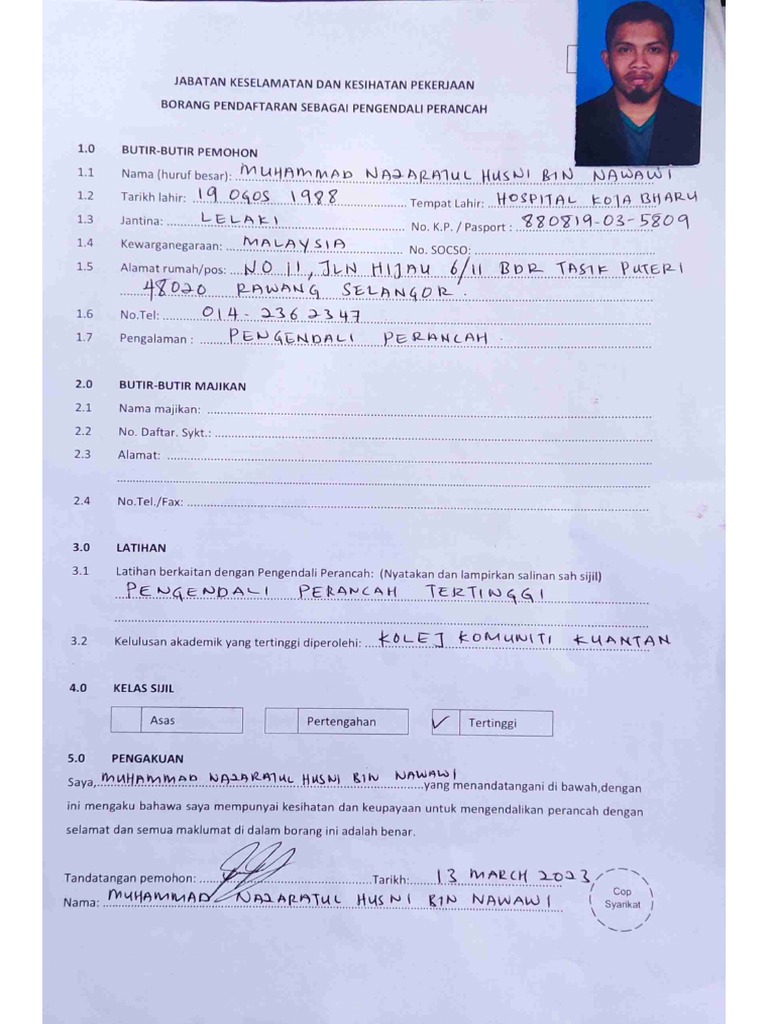 JABATAN KESELAMATAN DAN KESIHATAN PEKERJAAN
BORANG PENDAFTARAN SEBAGAI PENGENDALI PERANCAH
1.0 BUTIR-BUTIR PEMOHON
1.1 Nama (huruf besar): MUHAMMAD NAZARATUL HUSNI BIN NAWAWI
1.2 Tarikh lahir: 19 OGOS 1988 Tempat Lahir: HOSPITAL KOTA BHARU
1.3 Jantina: LELAKI No. K.P. / Pasport : 880819-03-5809
1.4 Kewarganegaraan: MALAYSIA No. SOCSO:
1.5 Alamat rumah/pos: NO 11, JLN HIJAU 6/11 BDR TASIK PUTERI
48020 RAWANG SELANGOR.
1.6 No.Tel: 014-236 2347
1.7 Pengalaman : PENGENDALI PERANCAH.
2.0 BUTIR-BUTIR MAJIKAN
2.1 Nama majikan:
2.2 No. Daftar. Sykt.:
2.3 Alamat:
2.4 No.Tel./Fax:
3.0 LATIHAN
3.1 Latihan berkaitan dengan Pengendali Perancah: (Nyatakan dan lampirkan salinan sah sijil)
PENGENDALI PERANCAH TERTINGGI
3.2 Kelulusan akademik yang tertinggi diperolehi: KOLEJ KOMUNITI KUANTAN
4.0 KELAS SIJIL
Asas Pertengahan ✓ Tertinggi
5.0 PENGAKUAN
Saya, MUHAMMAD NAZARATUL HUSNI BIN NAWAWI yang menandatangani di bawah,dengan
ini mengaku bahawa saya mempunyai kesihatan dan keupayaan untuk mengendalikan perancah dengan
selamat dan semua maklumat di dalam borang ini adalah benar.
Tandatangan pemohon: Tarikh: 13 MARCH 2023
Nama: MUHAMMAD NAZARATUL HUSNI BIN NAWAWI
Cop
Syarikat